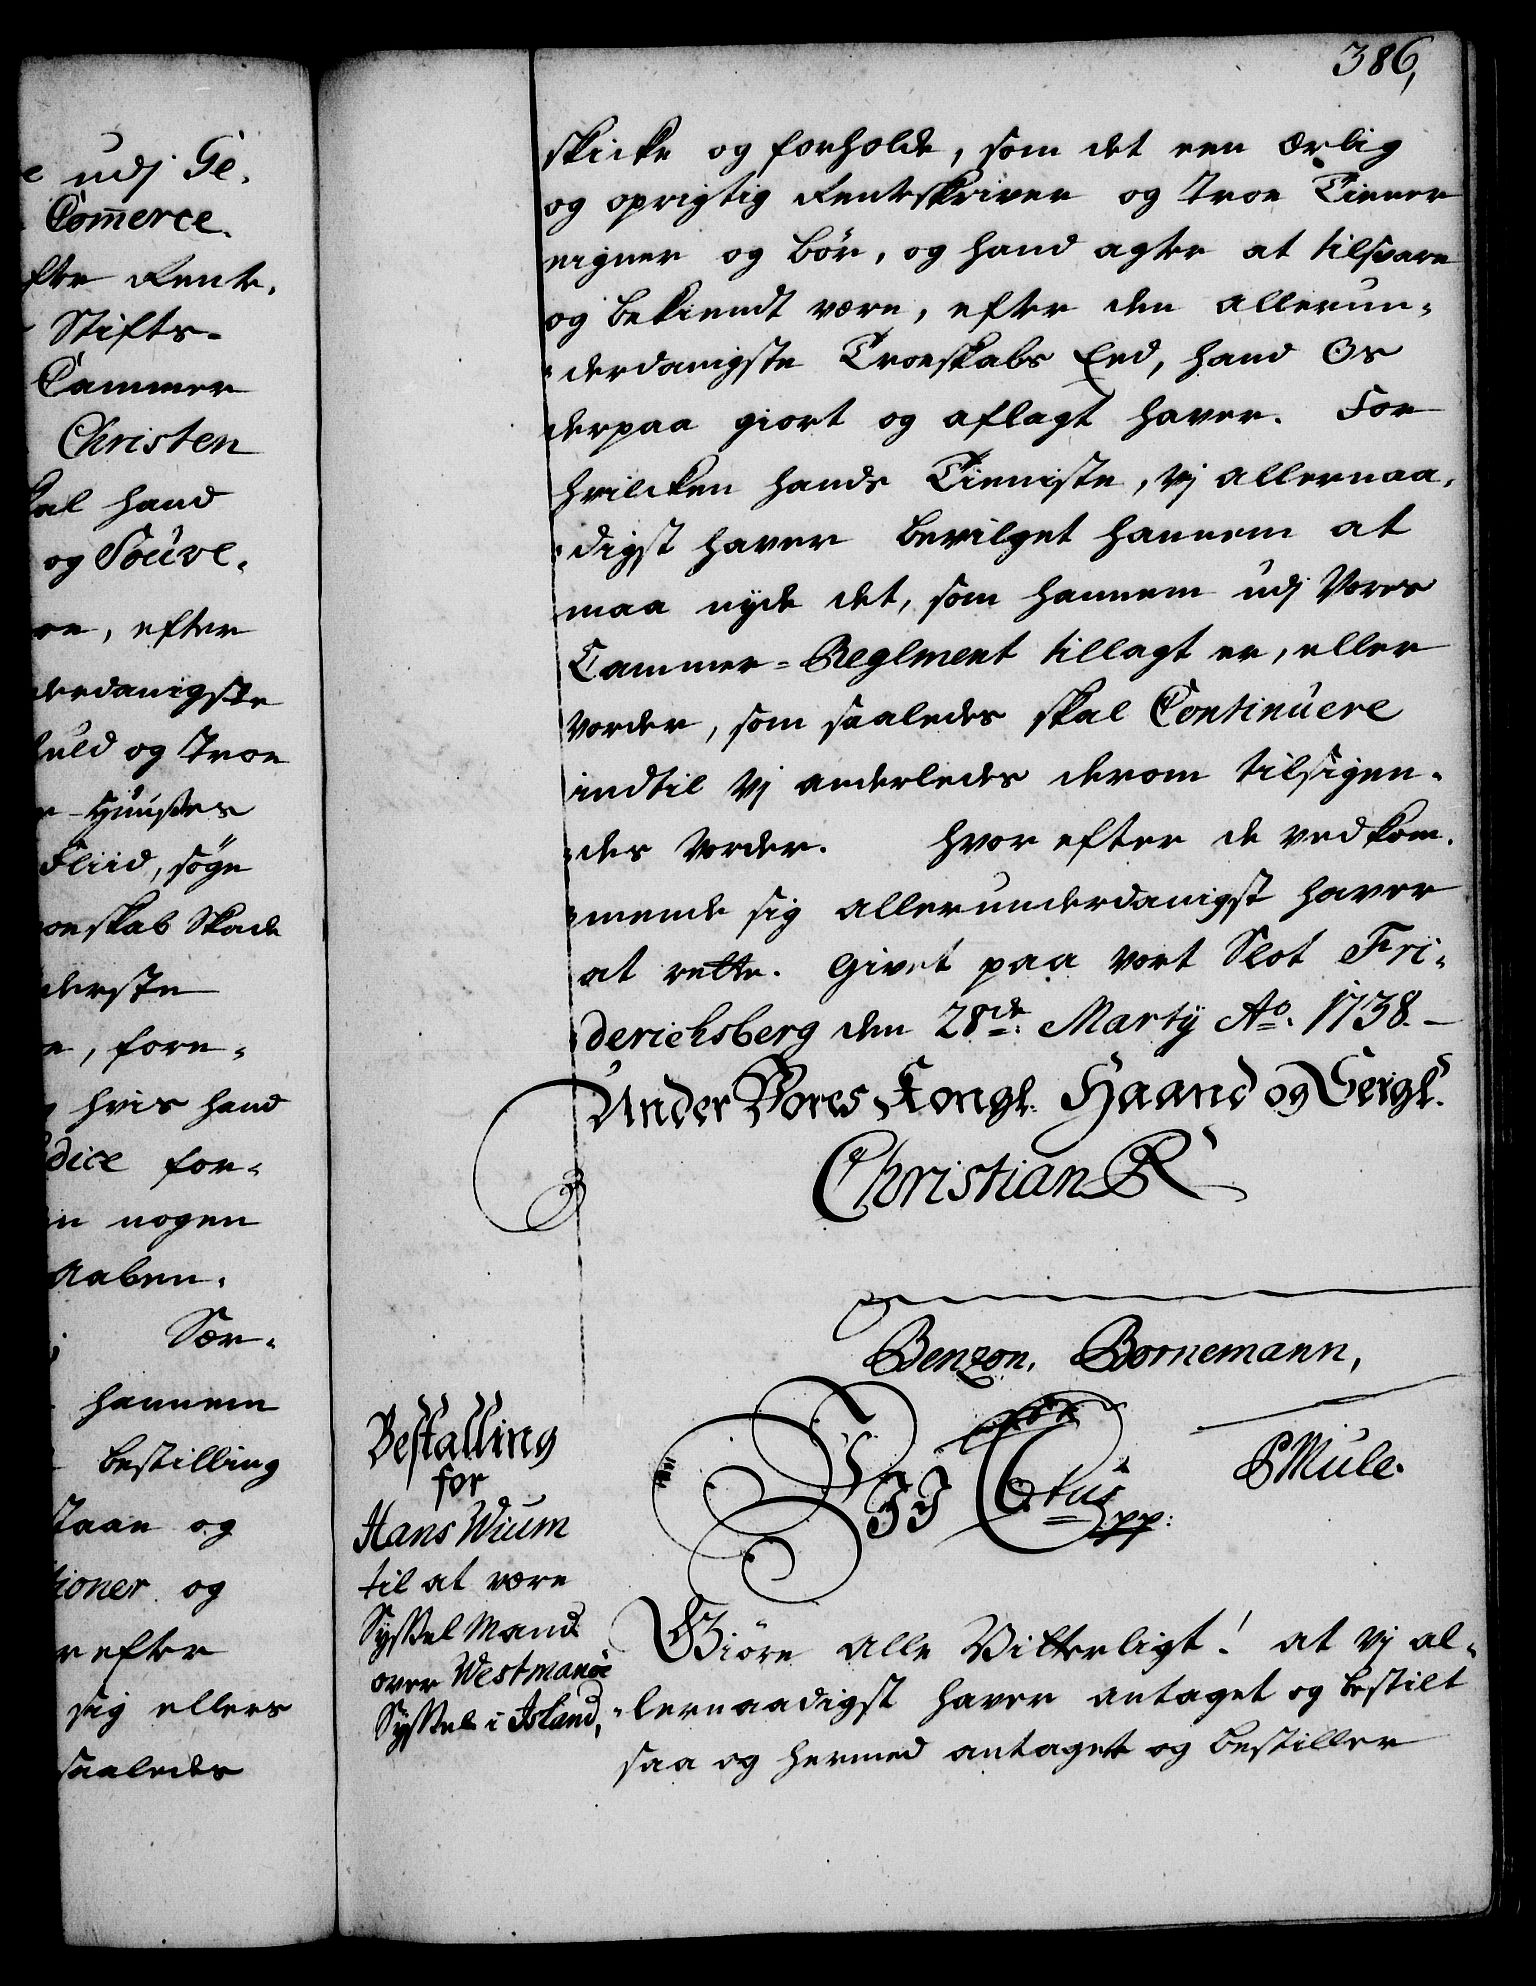 e udj Ge-
Commerce.
fte Rente-
Stifts-
Cammer
Christen
kal hand
og Souve-
oe, efter
derdanigste
huld og Troe
Fliid, søge
oeskab Skade
derste
e, fore-
hvis hand
dice for-
en nogen
Aaben-
Sær-
hannem
bestilling
staae og
tioner og
r efter
sig ellers
saaledes
386,
skicke og forholde, som det een Ærlig
og oprigtig Renteskriver og Troe Tiener
eigner og bør, og hand agter at tilsvare
og bekiendt være, efter den allerun-
derdanigste Troeskabs Eed, hand Os
derpaa giort og aflagt haver. For
hvilcken hands Tieniste, vj allernaa-
digst haver bevilget hannem at
maa nyde det, som hannem udj Vores
Cammer-Reglment tillagt er, eller
vorder, som saaledes skal Continuere
indtil vj anderledes derom tilsigen-
des vorder. Hvor efter de vedkom-
mende sig allerunderdanigst haver
at rette. Givet paa vort Slot Fri-
derichsberg den 28de: Martij Ao. 1738.
Under Vores Kongl. Haand og Seigl.
Christian R
Benzon. Bornemann,
PMule.
Bestalling
for
Hans Wium
til at være
Syssel Mand
over Westmanøe
Syssel i Island,
VII C6tus pp:
Giøre alle Vitterligt! at vj al-
lernaadigst haver antaget og bestilt
saa og hermed antaget og bestiller